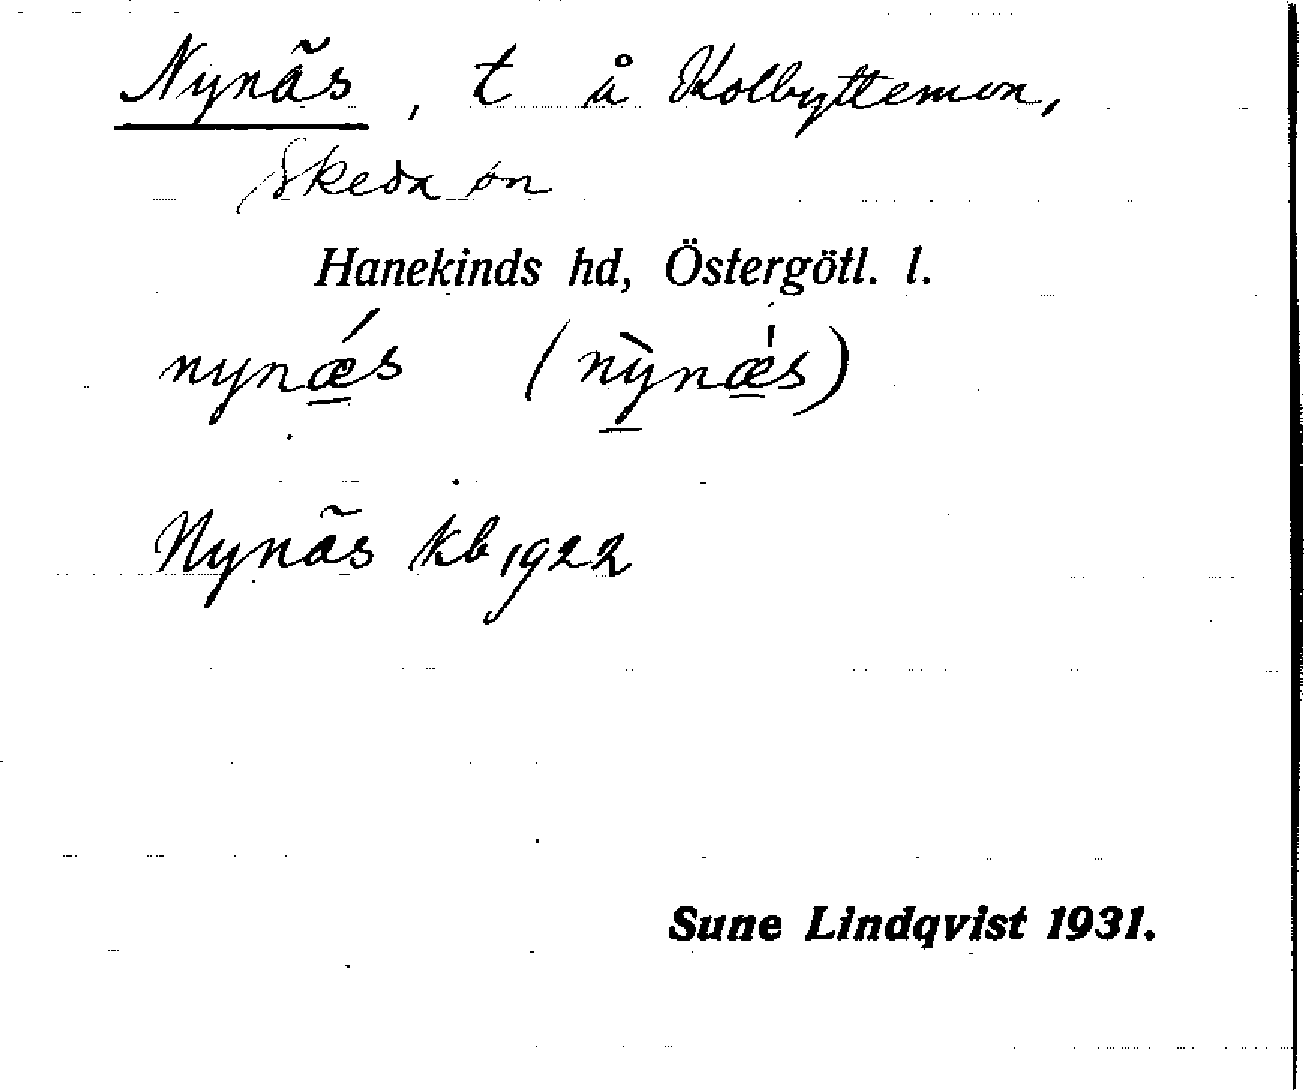 Nynäs, t å Kolbyttemon,
Skeda sn
Hanekinds hd, Östergötl. l.
nynǽs (nỳnǽs)
Nynäs kb 1922
Sune Lindqvist 1931.